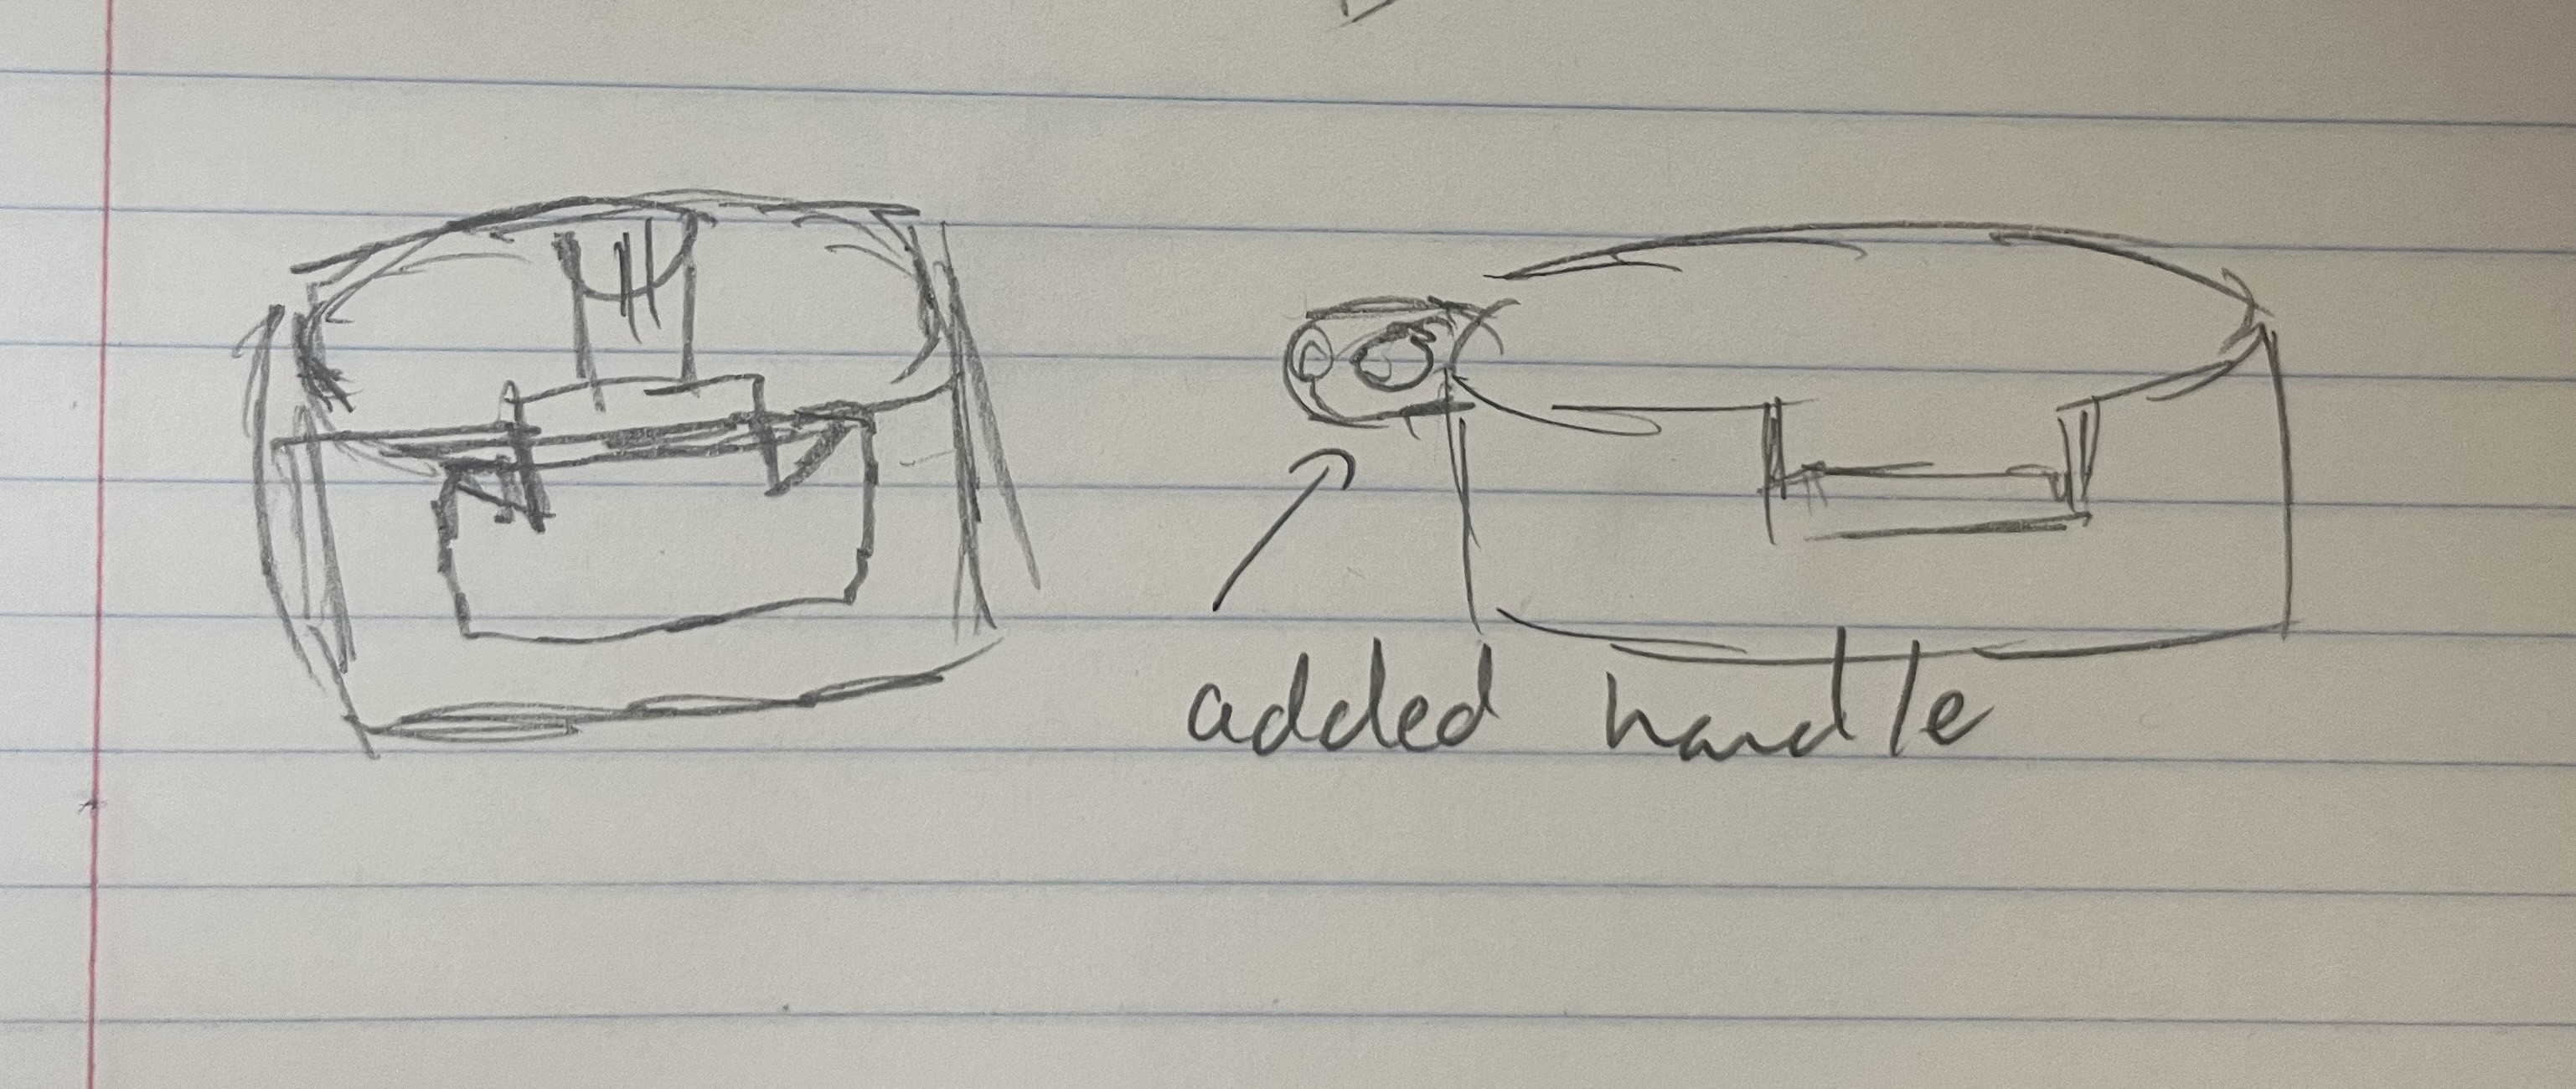 added handle